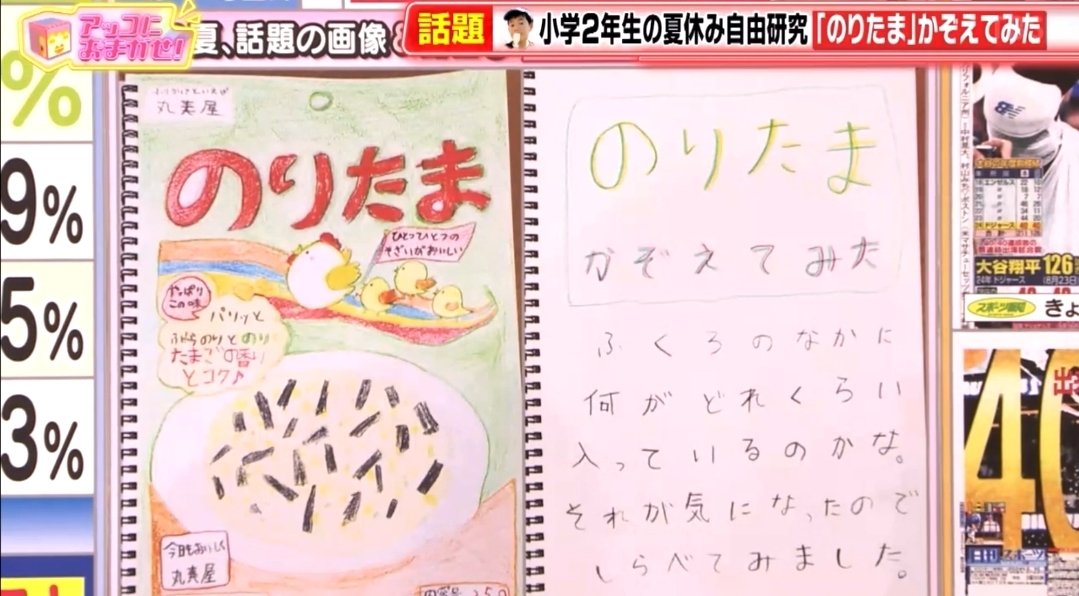 アッコに
おまかせ!
夏、話題の画像
話題
小学2年生の夏休み自由研究「のりたま」かぞえてみた
%
9%
5%
3%
丸美屋
のりたま
ひとつひとつの
そざいがおいしい
やっぱり
この味
パリッと
のりと のり
たまごの香り
とコク♪
今日もおいしく
丸美屋
のりたま
かぞえてみた
ふくろのなかに
何がどれくらい
入っているのかな。
それが気になったので
しらべてみました。
エンゼルス
ドジャース
大谷翔平 126
24年ドジャース (8月23日)
きょ
40
出